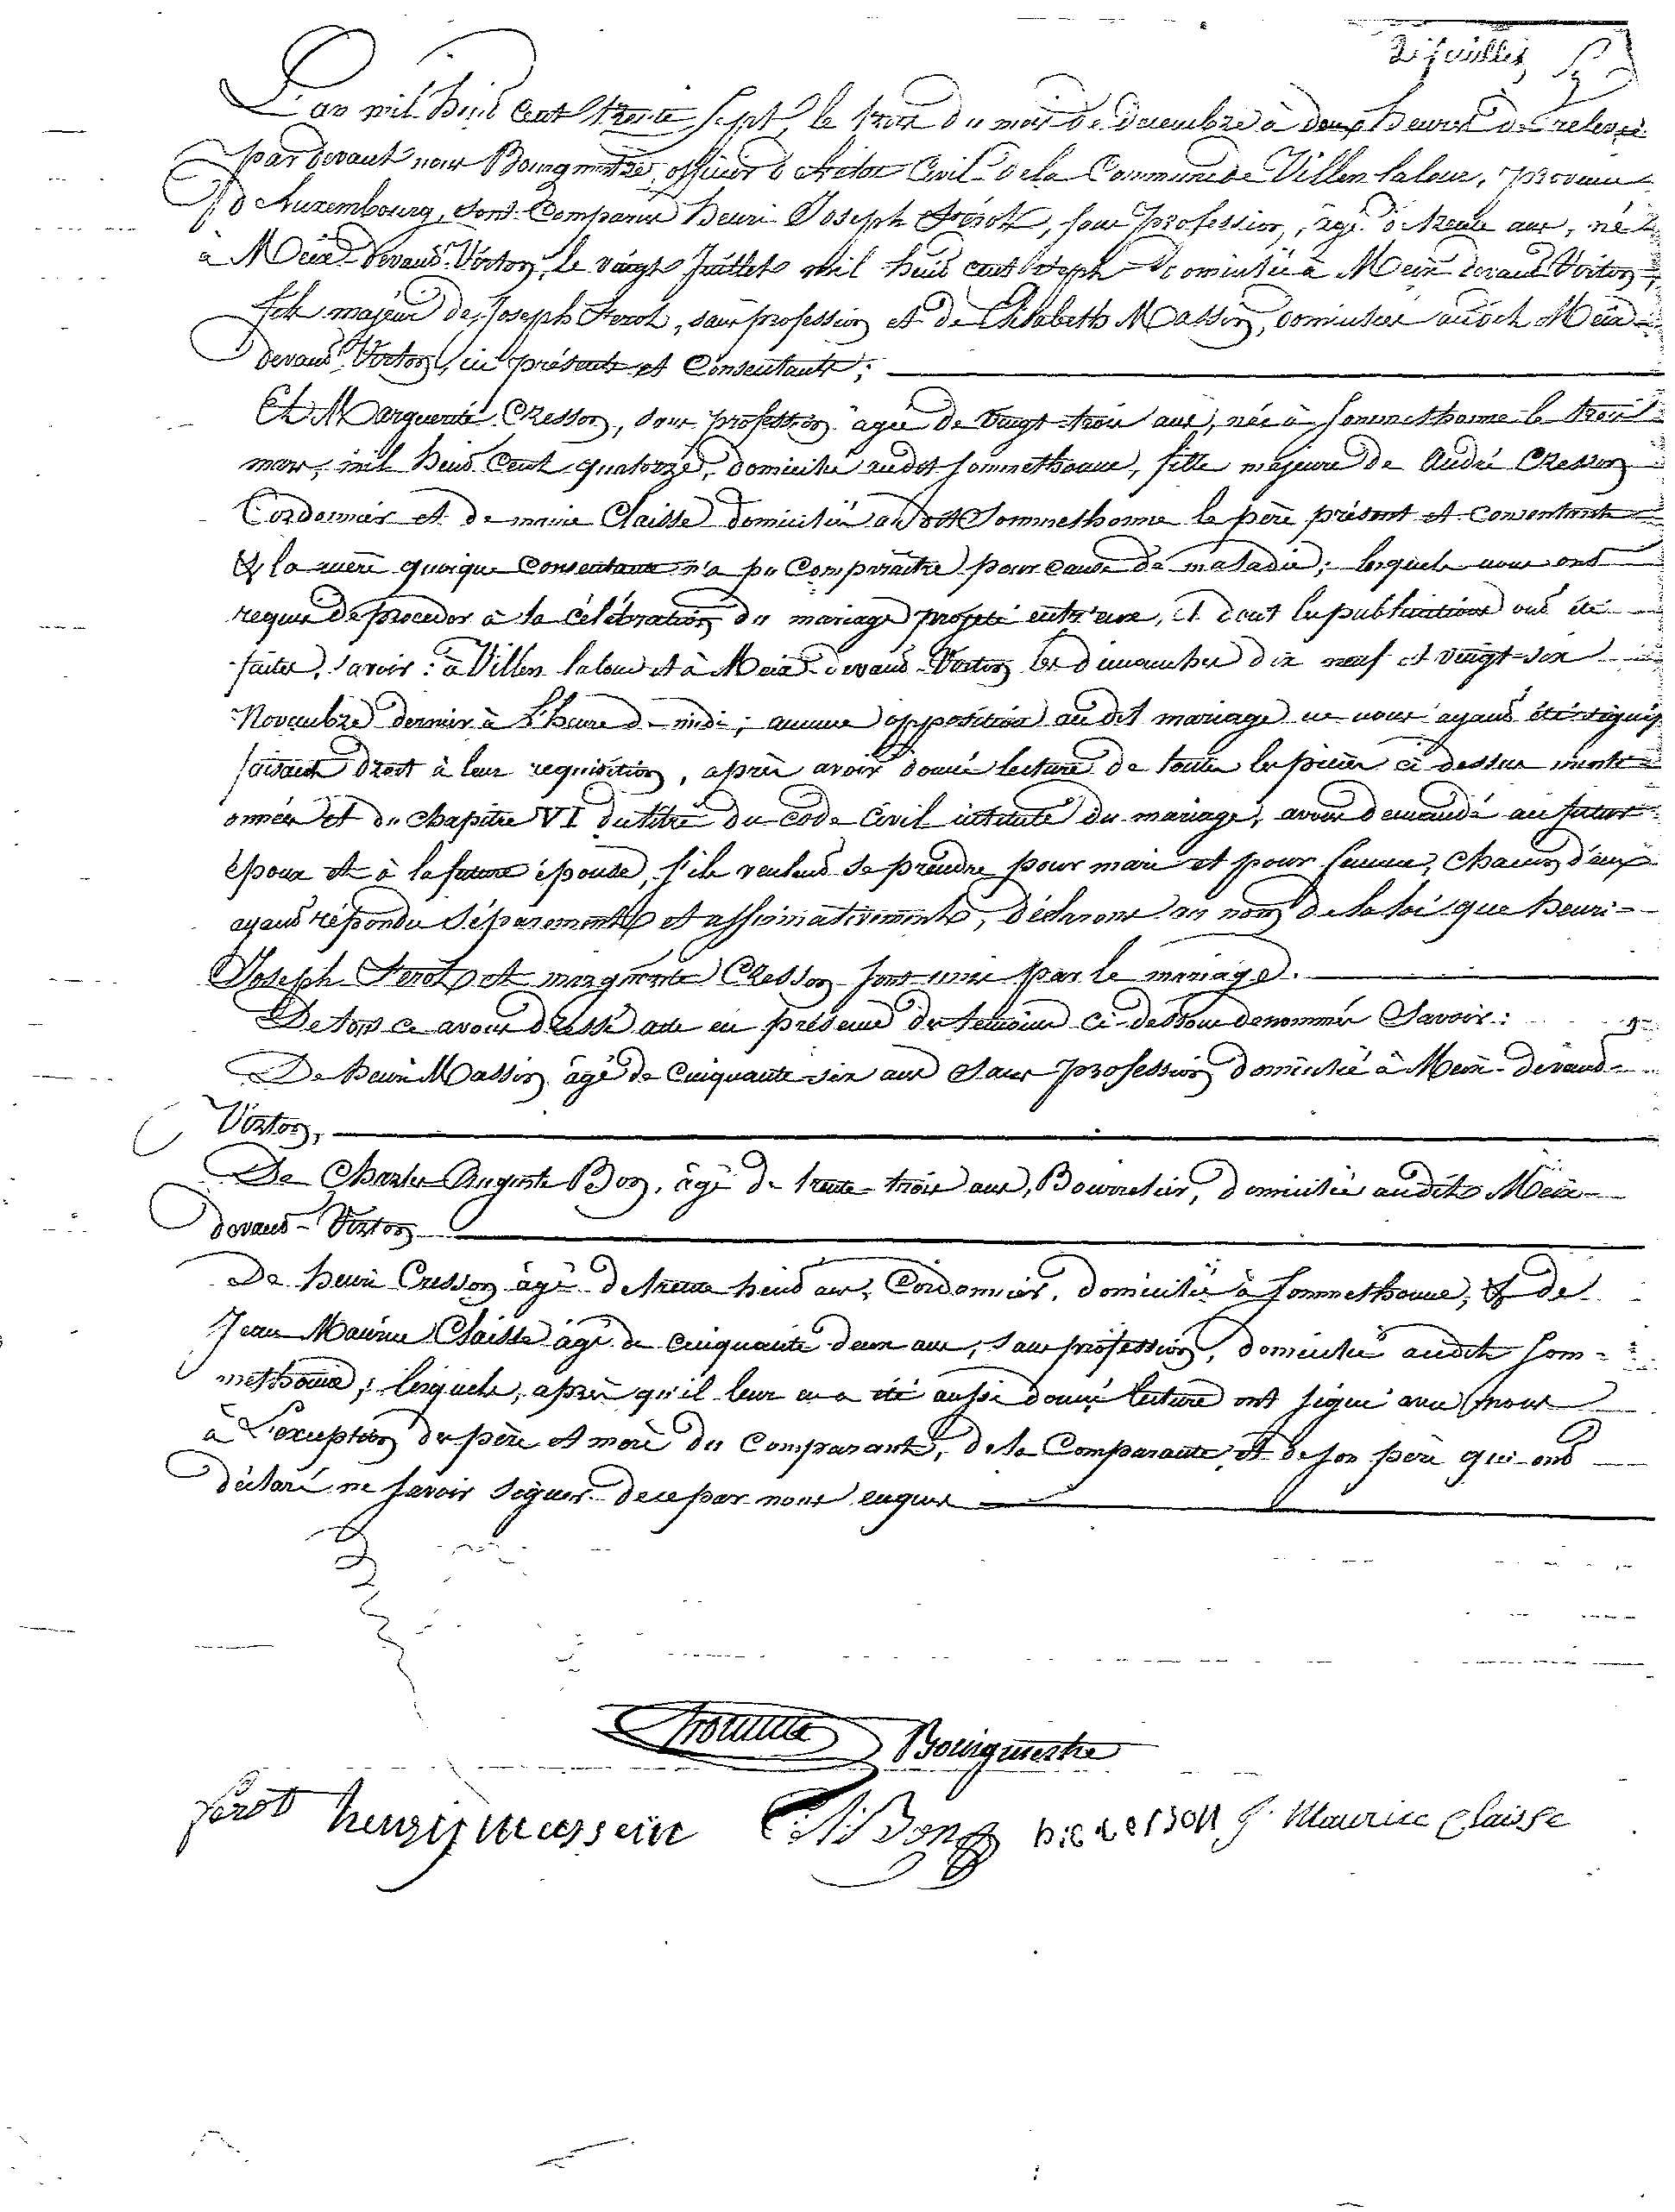 2e feuillet
L'an mil huit cent trente sept, le trois du mois de décembre à deux heures de relevée
par devant nous Bourgmestre, officier de l'état Civil de la Commune de Villers la loue, province
de Luxembourg, sont Comparus henri Joseph Férot, sans profession, âgé de trente ans, né
à Meix devant Virton, le vingt Juillet mil huit cent sept domicilié à Meix devant Virton,
fils majeur de Joseph Ferot, sans profession et de Elisabeth Massin, domiciliés audit Meix
devant Virton, ici présents et Consentants;
Et Marguerite Cresson, sans profession âgée de vingt-trois ans, née à Sommethonne le trois
mars, mil huit Cent quatorze, domiciliée audit Sommethonne, fille majeure de André Cresson
Cordonnier et de marie Claisse domiciliés audit Sommethonne le père présent et Consentant
& la mère quoique Consentante n'a pu Comparaître pour cause de maladie; lesquels nous ont
requis de proceder à la célébration du mariage projeté entr'eux, et dont les publications ont été
faites, savoir: à Villers la loue et à Meix devant Virton les dimanches dix neuf et vingt-six
Novembre dernier à l'heure de midi; aucune opposition audit mariage ne nous ayant été signifiée
faisant droit à leur requisition, après avoir donné lecture de toutes les pièces ci dessus menti-
onnées et du chapitre VI du titre du code Civil intitulé du mariage, avons demandé au futur
époux et à la future épouse, s'ils veulent se prendre pour mari et pour femme, chacun d'eux
ayant répondu séparement et affirmativement, déclarons au nom de la loi que henri-
Joseph Ferot et marguerite Cresson sont unis par le mariage.
De tout ce avons dressé acte en présence des témoins ci-dessous denommés Savoir:
De henri Massin âgé de Cinquante-six ans sans profession domicilié à Meix-devant-
Virton,
De Charles Auguste Bon, âgé de trente-trois ans, Bourrelier, domicilié audit Meix-
devant-Virton
De henri Cresson âgé de trente huit ans, Cordonnier, domicilié à Sommethonne, & de
Jean Maurice Claisse âgé de cinquante deux ans, sans profession, domicilié audit Som-
methonne; lesquels, après qu'il leur en a été aussi donné lecture ont signé avec nous
à L'exception des père et mère du Comparant, de la Comparante et de son père qui ont
déclaré ne savoir signer de ce par nous enquis
Bourgmestre
ferot henry massin Bon J. Maurice Claisse